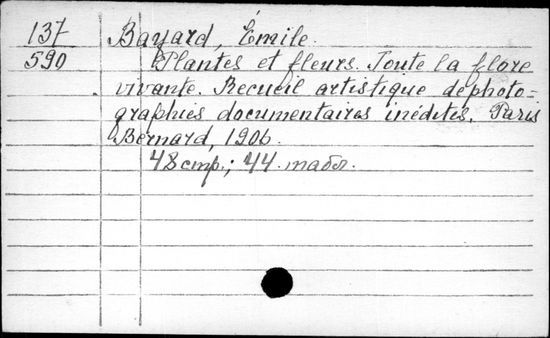 137 Bayard, Émile.
590 Plantes et fleurs. Toute la flore
vivante. Recueil artistique de photo=
graphies documentaires inédites. Paris
Bernard, 1906.
48 стр.; 44 табл.